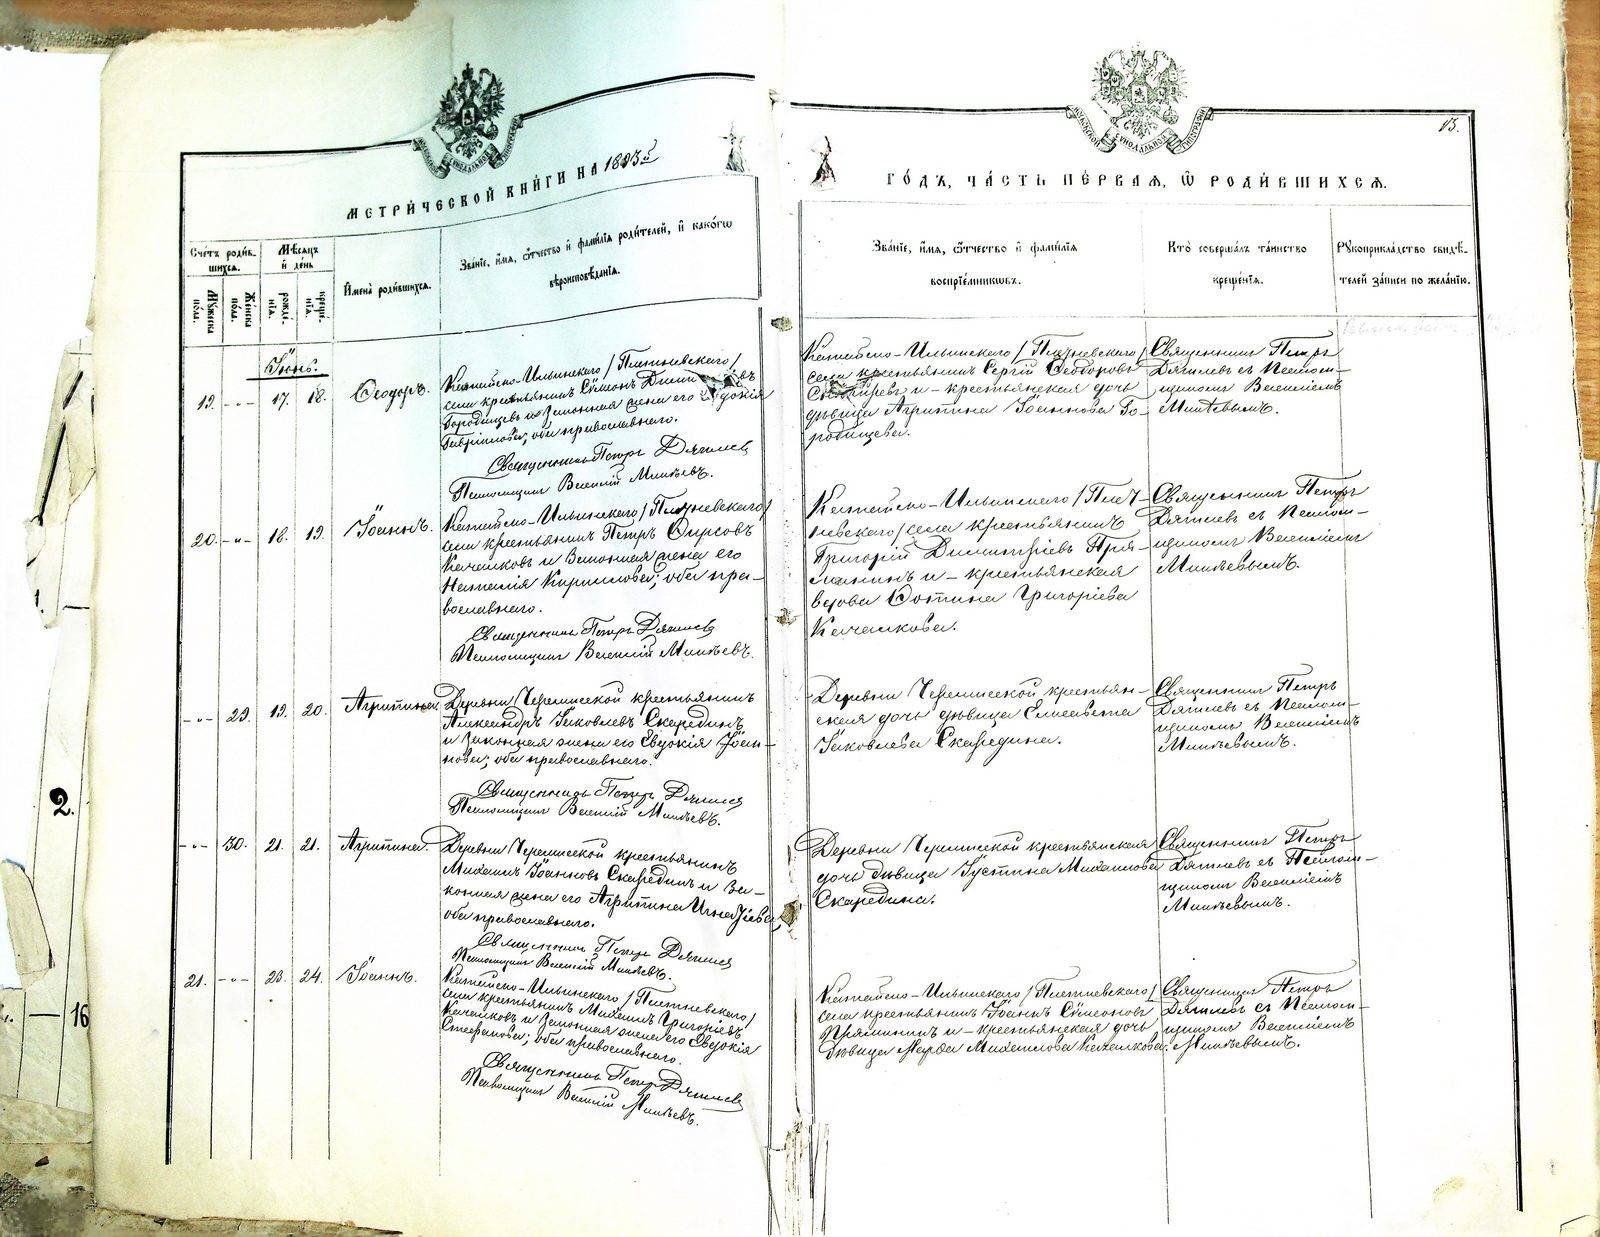 13.
МЕТРИЧЕСКОЙ КНИГИ НА 1893й
ГОДЪ, ЧАСТЬ ПЕРВАЯ, Ѡ РОДИВШИХСЯ.
Счетъ родившихся.
Мужеска пола.
Женска пола.
Мѣсяцъ и день
рожденїя.
крещенїя.
Имена родившихся.
Званїе, имя, ѿчество и фамилїя родителей, и какогѡ
вѣроисповѣданїя.
Званїе, имя, ѿчество и фамилїя
воспрїемникѡвъ.
Кто совершалъ таинство
крещенїя.
Рукоприкладство свидѣтелей записи по желанїю.
Іюнь.
19. -"- 17. 18. Ѳеодоръ.
Катайско-Ильинскаго /Плетневскаго/
села крестьянинъ Сѵмеонъ
Городищевъ и законная жена его Евдокія
Гавріилова; оба православнаго.
Священникъ Петръ Дягилев
Псаломщикъ Василій Михѣевъ.
Катайско-Ильинскаго /Плетневскаго/
села крестьянинъ Сергій Ѳеодоровъ
и - крестьянская дочь
дѣвица Агрипина Іоаннова Го-
родищева.
Священникъ Петръ
Дягилевъ съ Псалом-
щикомъ Василіемъ
Михѣевымъ.
20. -"- 18. 19. Іоаннъ.
Катайско-Ильинскаго /Плетневскаго/
села крестьянинъ Петръ Ѳирсовъ
Качалковъ и законная жена его
Наталія Кириллова; оба пра-
вославнаго.
Священникъ Петръ Дягилев
Псаломщикъ Василій Михѣевъ.
Катайско-Ильинскаго /Плет-
невскаго/ села крестьянинъ
Григорій Димитріевъ Пря-
минъ и - крестьянская
вдова Фотина Григоріева
Качалкова.
Священникъ Петръ
Дягилевъ съ Псалом-
щикомъ Василіемъ
Михѣевымъ.
-"- 29. 19. 20. Агрипина.
Деревни Черемисской крестьянинъ
Александръ Іаковлевъ Скарединъ
и законная жена его Евдокія Іоан-
нова; оба православнаго.
Священникъ Петръ Дягилев
Псаломщикъ Василій Михѣевъ.
Деревни Черемисской крестьян-
ская дочь дѣвица Елисавета
Іаковлева Скаредина.
Священникъ Петръ
Дягилевъ съ Псалом-
щикомъ Василіемъ
Михѣевымъ.
-"- 30. 21. 21. Агрипина.
Деревни Черемисской крестьянинъ
Михаилъ Іоанновъ Скарединъ и за-
конная жена его Агрипина Игнатіева;
оба православнаго.
Священникъ Петръ Дягилев
Псаломщикъ Василій Михѣевъ.
Деревни Черемисской крестьянская
дочь дѣвица Іустина Михаилова
Скаредина.
Священникъ Петръ
Дягилевъ съ Псалом-
щикомъ Василіемъ
Михѣевымъ.
21. -"- 23. 24. Іоаннъ.
Катайско-Ильинскаго /Плетневскаго/
села крестьянинъ Михаилъ Григоріевъ
Качалковъ и законная жена его Евдокія
Стефанова; оба православнаго.
Священникъ Петръ Дягилев
Псаломщикъ Василій Михѣевъ.
Катайско-Ильинскаго /Плетневскаго/
села крестьянинъ Іоаннъ Сѵмеоновъ
Пряминъ и - крестьянская дочь
дѣвица Марѳа Михаилова Качалкова.
Священникъ Петръ
Дягилевъ съ Псалом-
щикомъ Василіемъ
Михѣевымъ.
2.
16